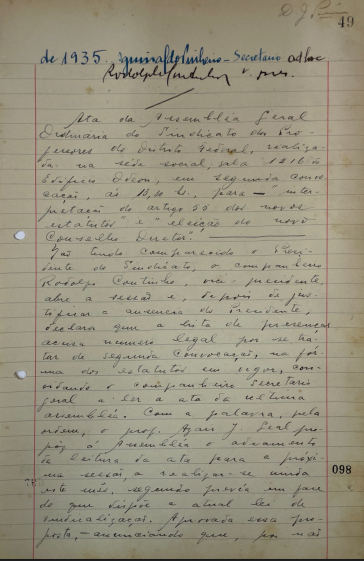 D. J. P.
49
de 1935. Aguinaldo Pinheiro - Secretario ad hoc
Rodolpho Coutinho
Ata da Assembléa Geral
Ordinaria do Sindicato dos Pro-
fessores do Distrito Federal, realiza-
da na séde social, sala 1216 do
Edificio Odeon, em segunda convo-
cação, ás hs., para - "inter-
pretação do artigo 55 dos novos
estatutos" e "eleição do novo
Conselho Diretor".
Não tendo comparecido o Presi-
dente do Sindicato, o companheiro
Rodolpho Coutinho, vice-presidente,
abre a sessão e, depois de jus-
tificar a ausencia do Presidente,
declara que a lista de presenças
acusa numero legal por se tra-
tar de segunda convocação, na fór-
ma dos estatutos em vigor, con-
vidando o companheiro secretario
geral a ler a ata da ultima
assembléa. Com a palavra, pela
ordem, o prof. J. Leal pro-
põe á Assembléa o adiamento
da leitura da ata para a próxi-
ma sessão, a realizar-se ainda
este mês, segundo previa em face
do que dispõe a atual lei de
sindicalização. Aprovada essa pro-
posta, - anunciando que, por não
098